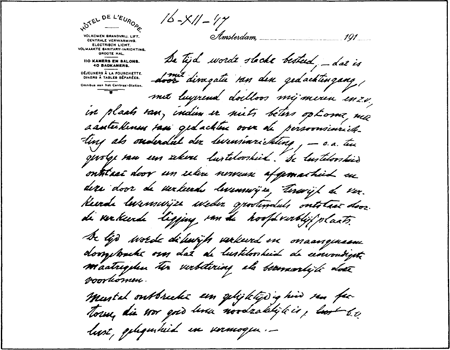 HÔTEL DE L'EUROPE.
VOLKOMEN BRANDVRIJ. LIFT.
CENTRALE VERWARMING.
ELECTRISCH LICHT.
VOLMAAKTE SANITARY-INRICHTING.
GROOTE HAL.
110 KAMERS EN SALONS.
40 BADKAMERS.
DÉJEUNERS À LA FOURCHETTE.
DINERS À TABLES SÉPARÉES.
Omnibus aan het Centraal-Station.
16-XII-'17
Amsterdam, 191
De tijd wordt slecht besteed, – dat is
door met den gedachtengang,
met luierend doelloos mijmeren enz.,
in plaats van, indien er niets beters opkome, met
aanteekenen van gedachten over de persoonsinrich-
ting als onderdeel der levensinrichting, – o.a. ten
gevolge van een zekere lusteloosheid. De lusteloosheid
ontstaat door een zekere nerveuze afgematheid en
deze door de verkeerde levenswijze, terwijl de ver-
keerde levenswijze weder grootendeels ontstaat door
de verkeerde ligging van de hoofdverblijfplaats.
De tijd wordt dikwijls verkeerd en onaangenaam
doorgebracht om dat de lusteloosheid de eenvoudigste
maatregelen ter verbetering als bezwaarlijk doet
voorkomen.
Meestal ontbreekt een gelijktijdigheid van fac-
toren, die voor goed leven noodzakelijk is, b.v.
lust, gelegenheid en vermogen. –